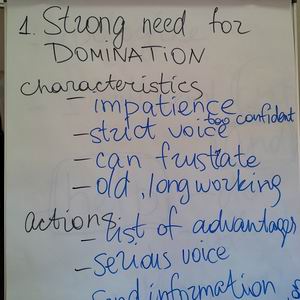 1. Strong need for
DOMINATION
characteristics
– impatience
too confident
– strict voice
– can frustrate
– old, long working
actions
– list of advantages
– serious voice
send information